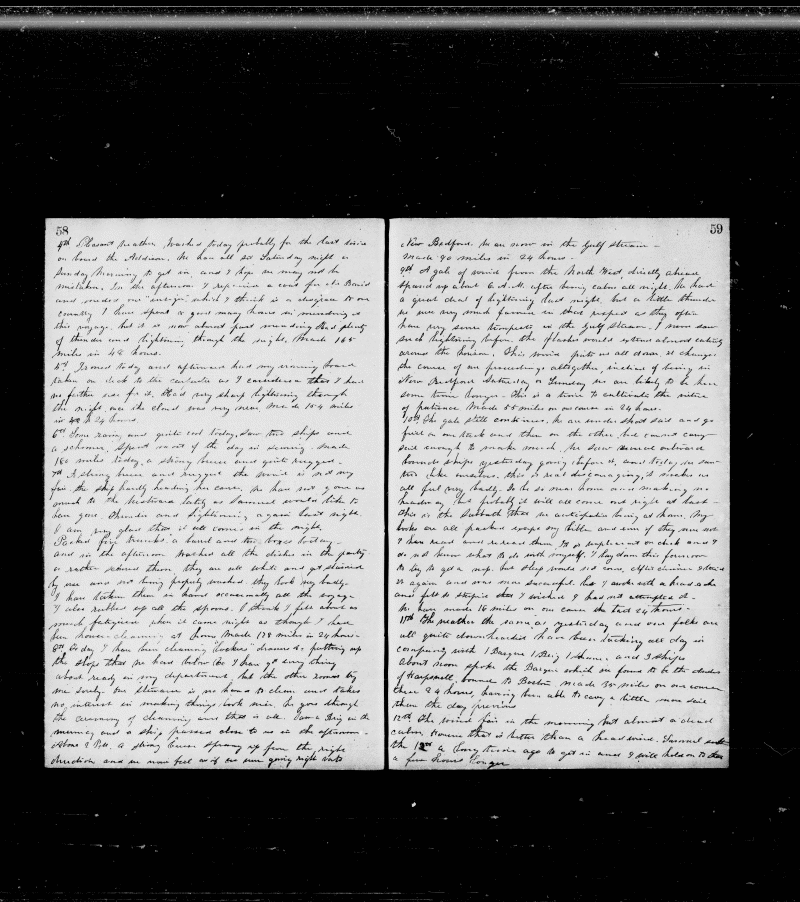 58
4th Pleasant weather, Washed today probably for the last time
on board the Addison. We have all set Saturday night or
Sunday Morning to get in, and I hope we may not be
mistaken. In the afternoon I repaired a coat for
and made an "ensign" which I think is a to our
country I have spent a good many hours in mending
this voyage, but it is now almost past mending. Had plenty
of thunder and lightning through the night. Made 165
miles in 48 hours.
5th Ironed today and afterward had my ironing board
taken on deck to the as I considered that I had
no further use for it. Had very sharp lightning through
the night, and the cloud was very near. Made 154 miles
in 24 hours
6th Some rain, and quite cool today, saw two ships and
a schooner, Spent most of the day in sewing. Made
180 miles today, a strong breeze and quite rugged.
7th A strong breeze and rugged the wind is not very
fair the ship hardly heading her course, We have not gone as
much to the Westward lately as Samuel would like to
have gone Thunder and Lightning again last night
I am very glad that it all comes in the night.
Packed five trunks a barrel and two boxes today-
and in the afternoon washed all the dishes in the pantry
or rather scoured them they are all white and get stained
by use and not being properly washed they look very badly.
I have taken them in hand occasionally all the voyage
I also rubbed up all the spoons. I think I felt about as
much fatigued when it came night as though I had
been house-cleaning at home Made 178 miles in 24 hours-
8th Today I have been cleaning lockers drawers &c putting up
the shop that we had below &c I have got every thing
about ready in my department, but the other rooms try
me sorely. Our steward is no hand to clean and takes
no interest in making things look nice, he goes through
the ceremony of cleaning and that is all. Saw a Brig in the
morning and a ship passed close to us in the afternoon.
About 2 P.M. a strong breeze sprung up from the right
direction and we now feel as if we were going right into
59
New Bedford. We are now in the Gulf stream-
Made 90 miles in 24 hours.
9th A gale of wind from the North West, directly ahead
sprung up about 6 A.M. after being calm all night. We had
a great deal of lightning last night, but a little thunder
we are very much favored in that respect as they often
have very severe tempests in the Gulf Stream. I never saw
such lightning before the flashes would extend almost entirely
around the horizon. This wind puts us all down, it changes
the course of our proceedings altogether, instead of being in
New Bedford Saturday or Sunday we are likely to be here
some time longer. This is a time to cultivate the virtue
of patience Made 55 miles on our course in 24 hours.
10th The gale still continues. We are under short sail and go
first on one tack and then on the other, but cannot carry
sail enough to make much. We saw several outward
bound ships yesterday going before it, and today we saw
two like ourselves. this is real discouraging, it makes us
all feel very badly. To be so near home and making no
headway, but probably it will all come out right at last-
this is the Sabbath that we anticipated being at home, My
books are all packed except my bible and even if they were not
I have read and reread them. It is unpleasant on deck and I
do not know what to do with myself. I lay down this forenoon
to try to get a nap, but sleep would not come, After dinner I tried
it again and was more successful. but I awoke with a head-ache
and felt so stupid that I wished I had not attempted it-
We have made 16 miles on our course the last 24 hours-
11th The weather the same as yesterday and our folks are
all quite down-hearted have been tacking all day in
company with 1 Barque 1 Brig 1 and 3 ships
About noon spoke the Barque which we found to be the
of Harpswell, bound to Boston made 35 miles on our course
these 24 hours, having been able to carry a little more sail
than the day previous
12th The wind fair in the morning but almost a dead
calm, However that is better than a headwind. Samuel
the 12th a long time ago to get in and I will hold on to that
a few hours longer